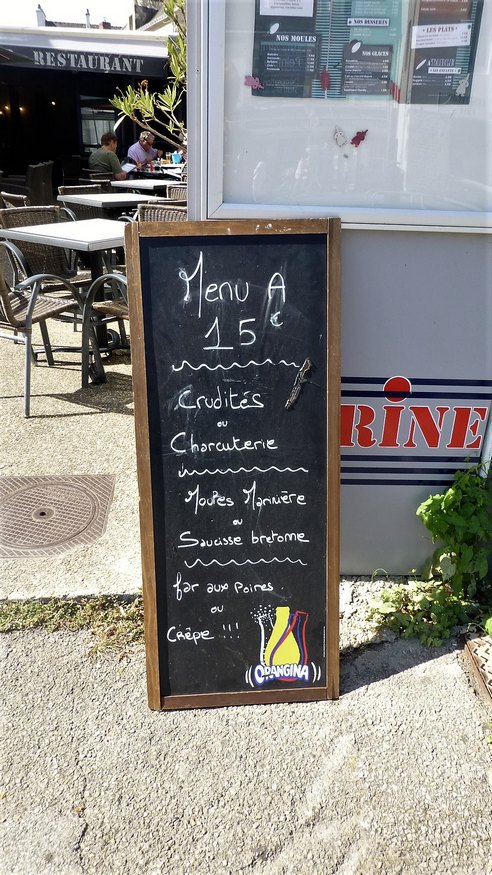 RESTAURANT
NOS MOULES
NOS DESSERTS
NOS GLACES
• LES PLATS •
Menu A
15€
Crudités
ou
Charcuterie
Moules Marinière
ou
Saucisse bretonne
far aux poires.
ou
Crêpe !!!
ORANGINA
RINE